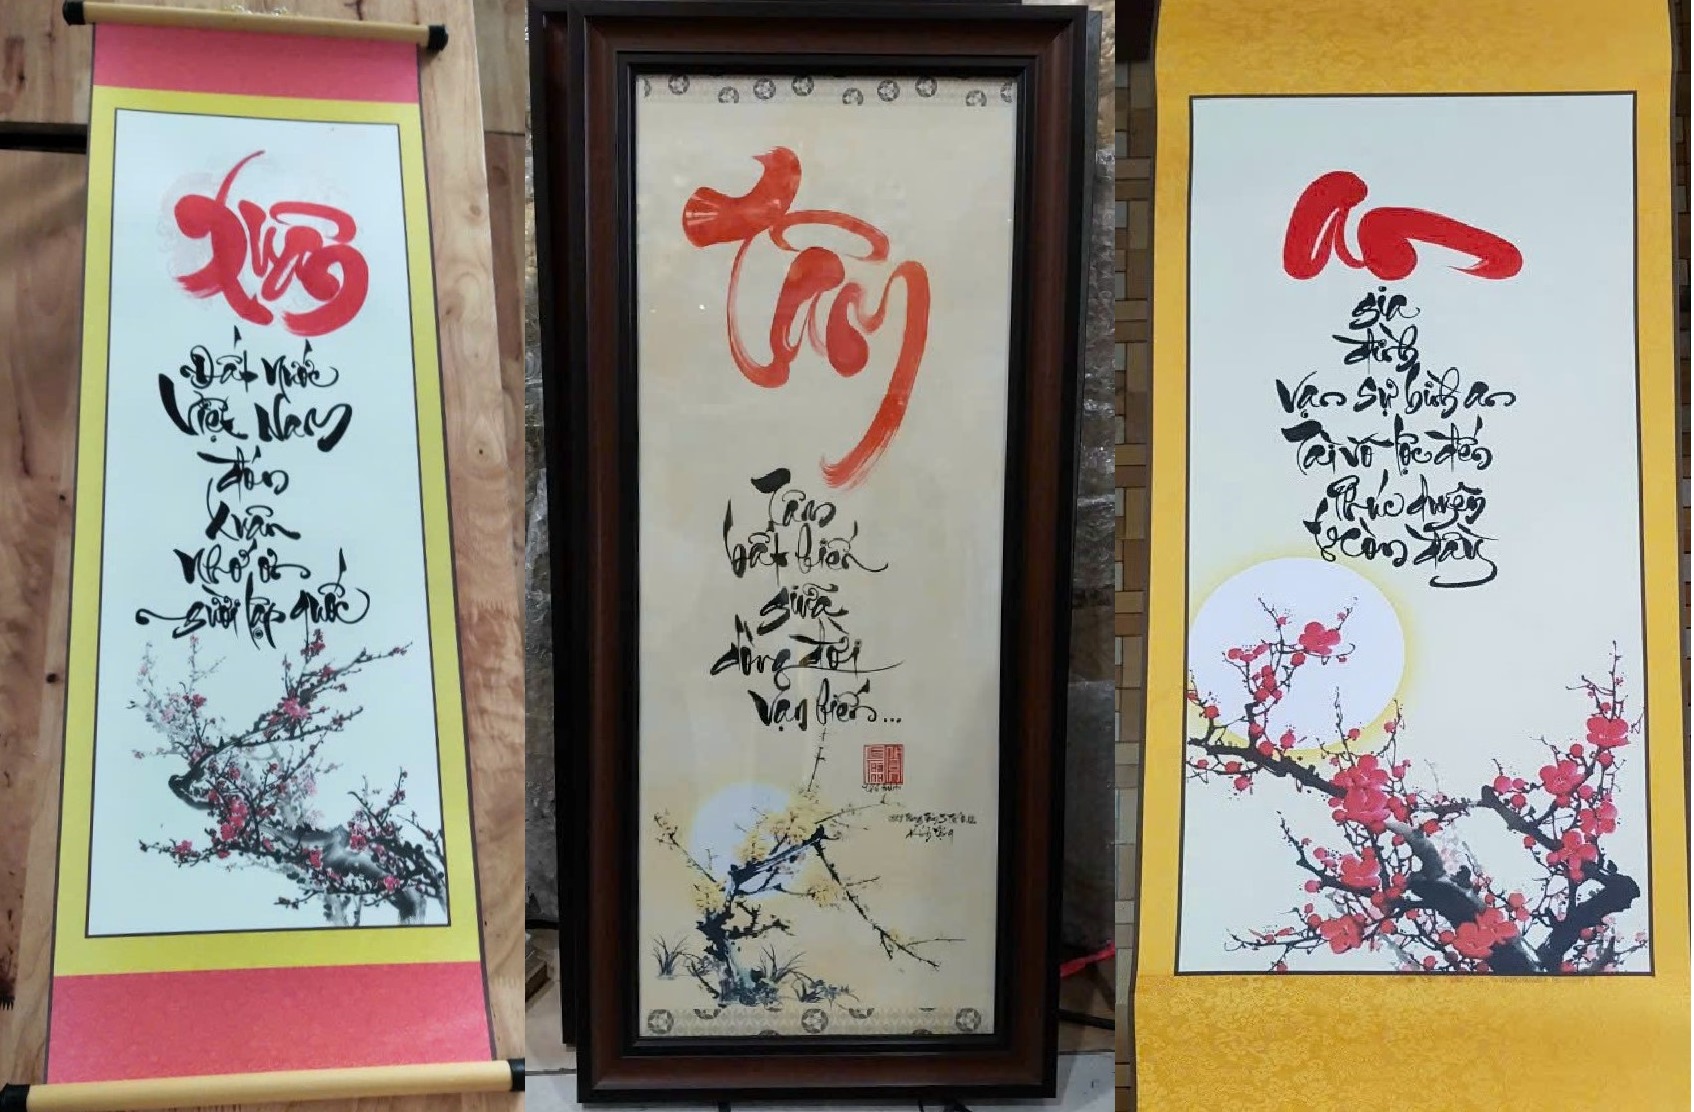 Xuân
Đất nước
Việt Nam
đón
Xuân
Nhớ ơn
người lập quốc
Tâm
Tâm
bất biến
giữa
dòng đời
vạn biến...
An
gia
đình
Vạn sự bình an
Tài vô lộc đến
Phúc duyên
ở còn đây